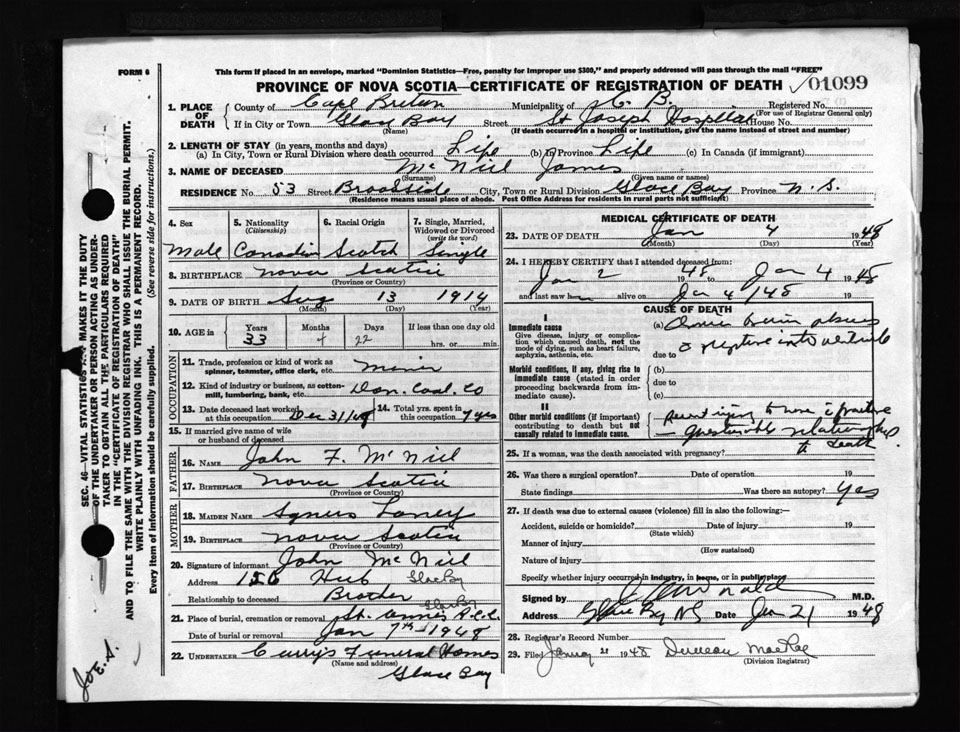 FORM 6
This form if placed in an envelope, marked "Dominion Statistics—Free, penalty for improper use $300," and properly addressed will pass through the mail "FREE"
PROVINCE OF NOVA SCOTIA—CERTIFICATE OF REGISTRATION OF DEATH 01099
1. PLACE OF DEATH
County of Cape Breton Municipality of C. B. Registered No.
(For use of Registrar General only)
If in City or Town Glace Bay Street St Joseph Hospital House No.
(Name) (If death occurred in a hospital or institution, give the name instead of street and number)
2. LENGTH OF STAY (in years, months and days)
(a) In City, Town or Rural Division where death occurred Life (b) In Province Life (c) In Canada (if immigrant)
3. NAME OF DECEASED McNeil James
(Surname) (Given name or names)
RESIDENCE No. 53 Street Brookside City, Town or Rural Division Glace Bay Province N.S.
(Residence means usual place of abode. Post Office Address for residents in rural parts not sufficient)
4. Sex 5. Nationality 6. Racial Origin 7. Single, Married,
(Citizenship) Widowed or Divorced
(write the word)
Male Canadin Scotch Single
8. BIRTHPLACE Nova Scotia
(Province or Country)
9. DATE OF BIRTH Aug 13 1914
(Month) (Day) (Year)
10. AGE in Years Months Days If less than one day old
33 4 22 hrs. or min.
OCCUPATION
11. Trade, profession or kind of work as
spinner, teamster, office clerk, etc. Miner
12. Kind of industry or business, as cotton-
mill, lumbering, bank, etc. Dom. Coal Co
13. Date deceased last worked
at this occupation Dec 31/47
14. Total yrs. spent in
this occupation 7 yrs
15. If married give name of wife
or husband of deceased
FATHER
16. NAME John F. McNeil
17. BIRTHPLACE Nova Scotia
(Province or Country)
MOTHER
18. MAIDEN NAME Agnes
19. BIRTHPLACE Nova Scotia
(Province or Country)
20. Signature of informant John McNeil
Address Hub Glace Bay
Relationship to deceased Brother
21. Place of burial, cremation or removal St. Annes Glace Bay
Date of burial or removal Jan 7th 1948
22. UNDERTAKER Curry's Funeral Homes
(Name and address)
Glace Bay
MEDICAL CERTIFICATE OF DEATH
23. DATE OF DEATH Jan 4 1948
(Month) (Day) (Year)
24. I HEREBY CERTIFY that I attended deceased from:
Jan 2 1948 to Jan 4 1948
and last saw h alive on Jan 4/48 19
CAUSE OF DEATH
I
Immediate cause
Give disease, injury or complication which caused death, not the mode of dying, such as heart failure, asphyxia, asthenia, etc.
(a) brain abscess
due to rupture into ventricle
Morbid conditions, if any, giving rise to immediate cause (stated in order proceeding backwards from immediate cause).
(b)
due to
(c)
II
Other morbid conditions (if important) contributing to death but not causally related to immediate cause.
fracture
— questionable relationship
to death
25. If a woman, was the death associated with pregnancy?
26. Was there a surgical operation? Date of operation 19
State findings Was there an autopsy? Yes
27. If death was due to external causes (violence) fill in also the following:—
Accident, suicide or homicide? Date of injury 19
(State which)
Manner of injury
(How sustained)
Nature of injury
Specify whether injury occurred in industry, in home, or in public place
Signed by M.D.
Address Glace Bay NS Date Jan 21 1948
28. Registrar's Record Number
29. Filed 21 1948 Duncan MacRae
(Division Registrar)
SEC. 46—VITAL STATISTICS MAKES IT THE DUTY
OF THE UNDERTAKER OR PERSON ACTING AS UNDER-
TAKER TO OBTAIN ALL THE PARTICULARS REQUIRED
IN THE "CERTIFICATE OF REGISTRATION OF DEATH"
AND TO FILE THE SAME WITH THE DIVISION REGISTRAR WHO SHALL ISSUE THE BURIAL PERMIT.
WRITE PLAINLY WITH UNFADING INK. THIS IS A PERMANENT RECORD.
Every item of information should be carefully supplied. (See reverse side for instructions.)